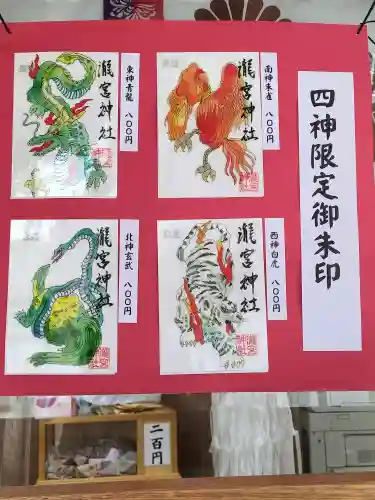 四神限定御朱印
東神青龍 八〇〇円
瀧宮神社
南神朱雀 八〇〇円
瀧宮神社
北神玄武 八〇〇円
瀧宮神社
西神白虎 八〇〇円
瀧宮神社
二百円